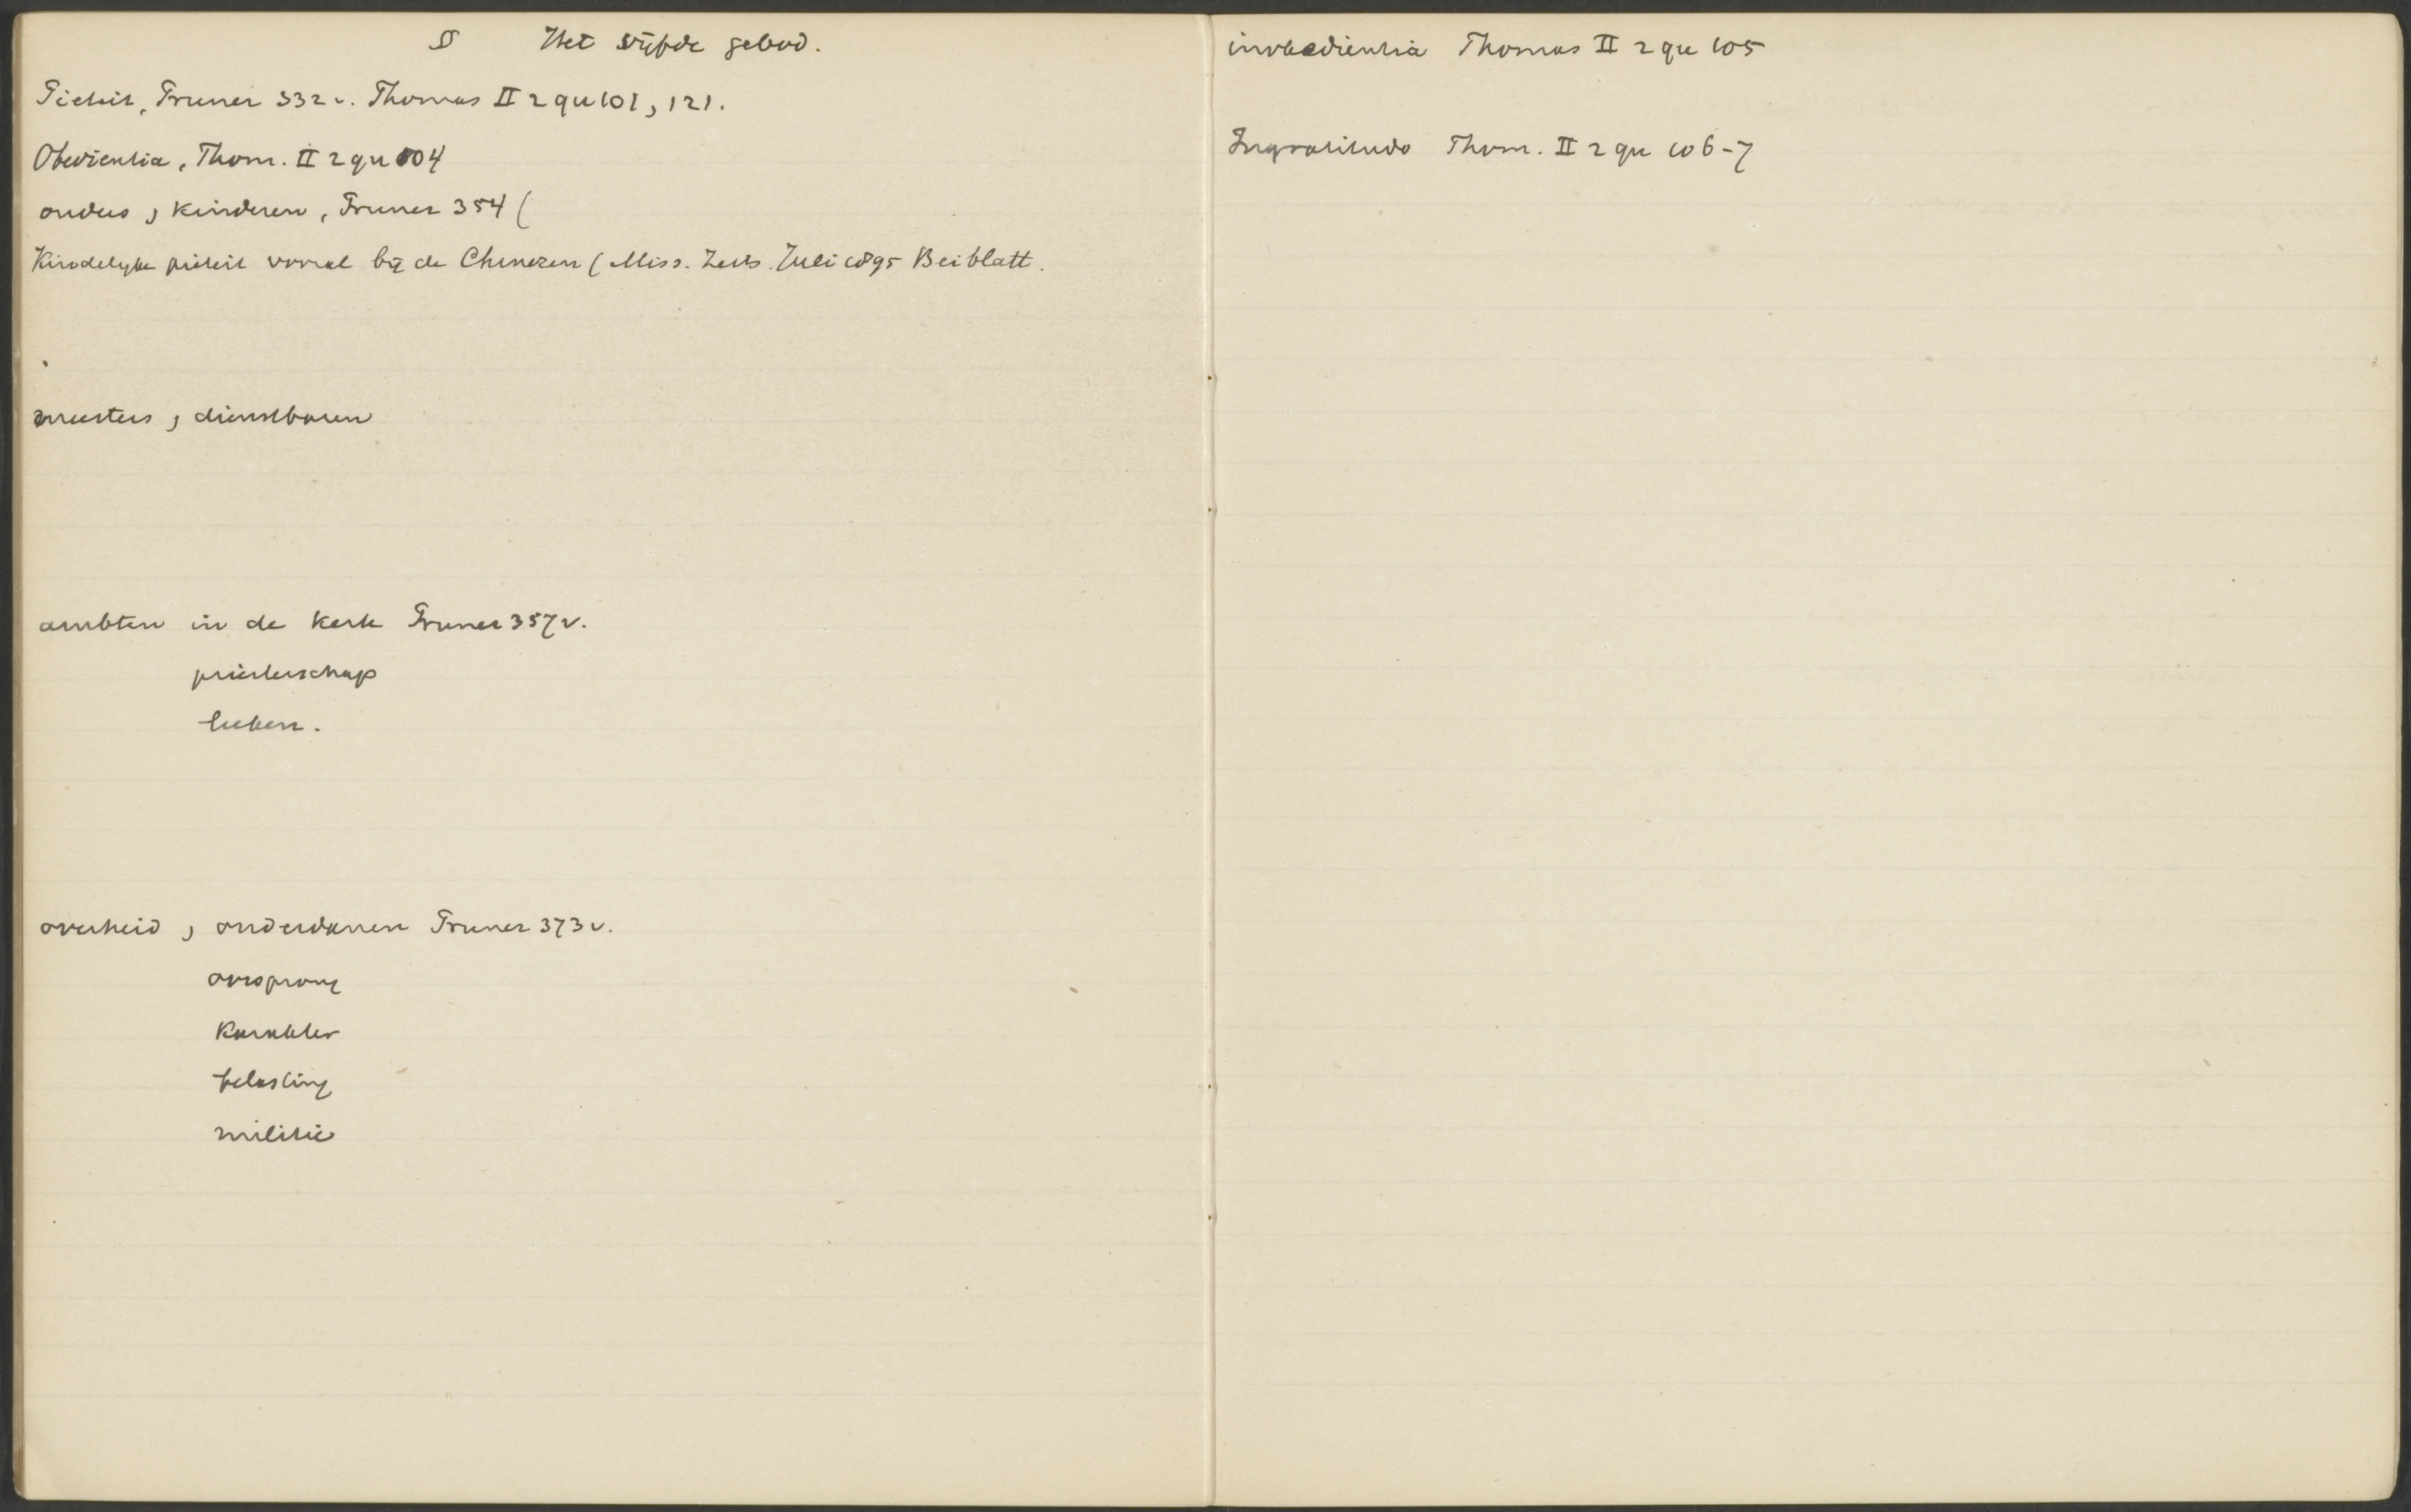 § Het vijfde gebod.
Pieteit, Pruner 332 v. Thomas II 2 qu 101, 121.
Obedientia, Thom. II 2 qu 104
ouders, kinderen, Pruner 354 (
Kinderlyke piëteit vooral bij de Chinezen (Miss. Zeits. Juli 1895 Beiblatt.
meesters, dienstbaren
ambten in de kerk Pruner 357 v.
priesterschap
leeken.
overheid, onderdanen Pruner 373 v.
oorsprong
karakter
belasting
militie
inobedientia Thomas II 2 qu 105
Ingratitudo Thom. II 2 qu 106-7